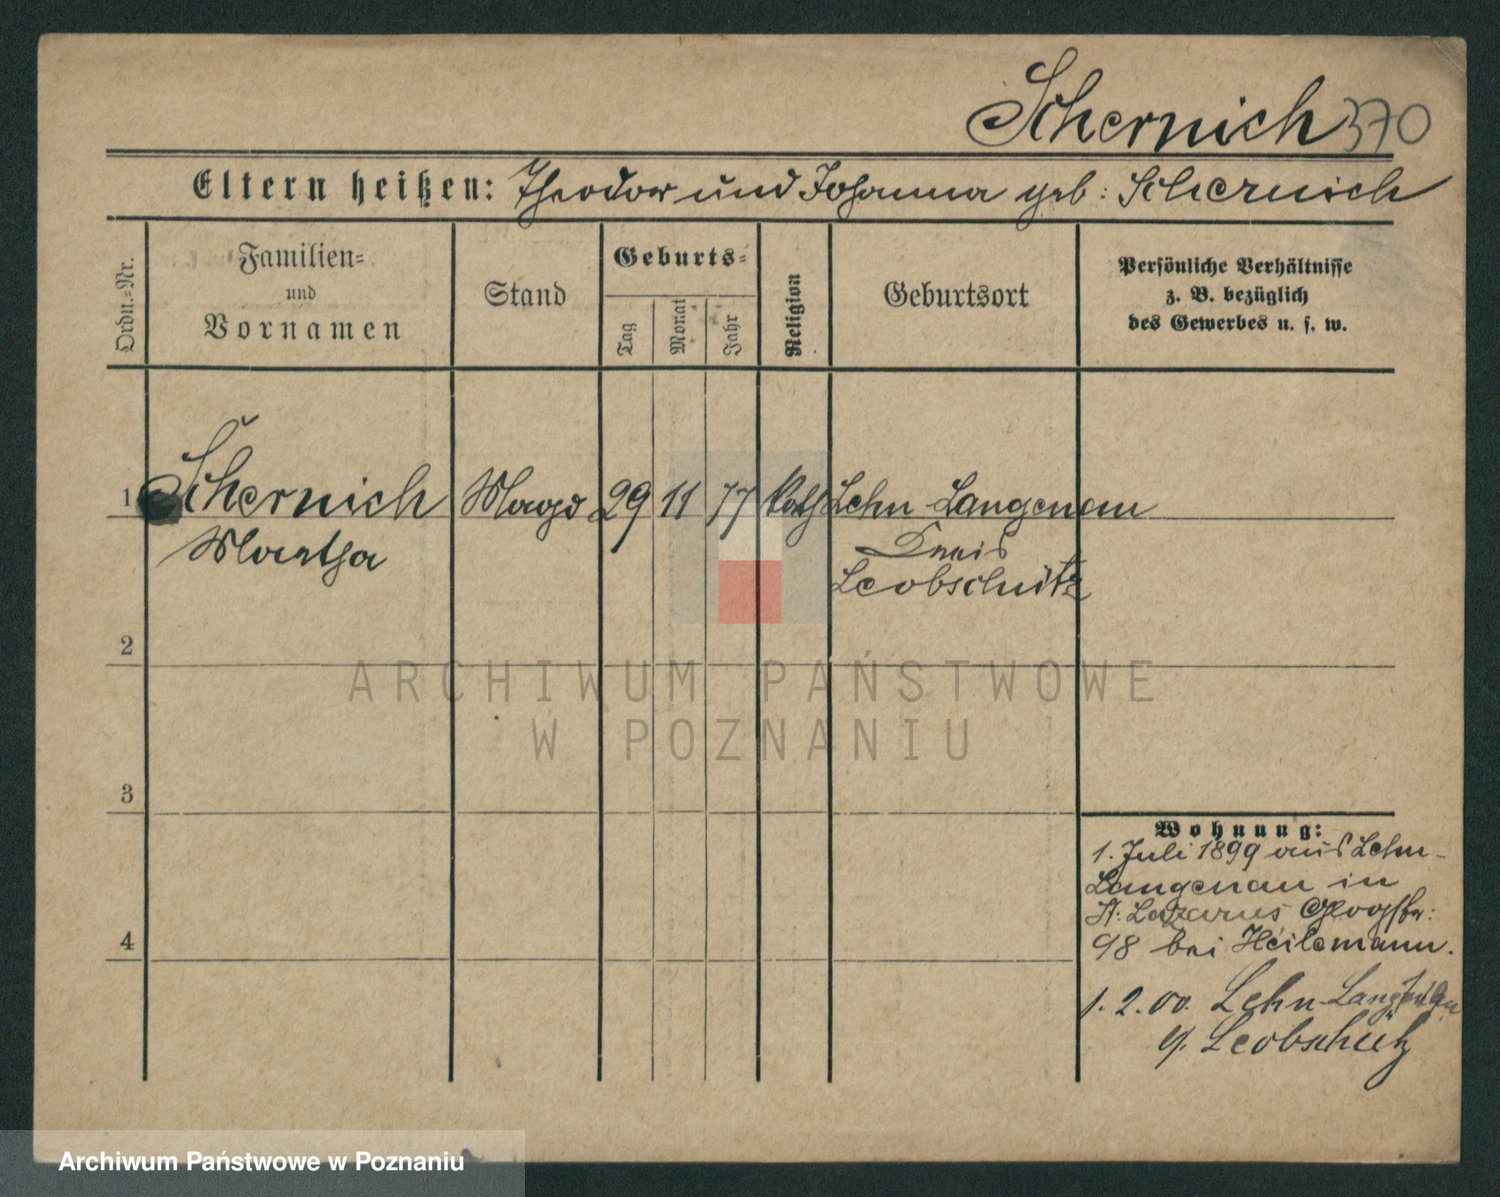 Schernich 370
Eltern heißen: Theodor und Johanna geb: Schernich
Ordn.=Nr.
Familien=
und
Vornamen
Stand
Geburts=
Tag
Monat
Jahr
Religion
Geburtsort
Persönliche Verhältnisse
z. B. bezüglich
des Gewerbes u. s. w.
1 Schernich Magd 29 11 77 kath Lehn-Langenau
Martha
Kreis
Leobschütz
2
ARCHIWUM PAŃSTWOWE
W POZNANIU
3
Wohnung:
1. Juli 1899 aus Lehn-
Langenau in
St: Lazarus
98 bei Heilemann.
4
1. 2. 00. Lehn-
Leobschütz
Archiwum Państwowe w Poznaniu